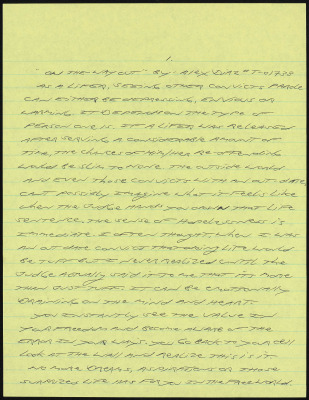 1.
"ON THE WAY OUT" BY: ALEX DIAZ # T-01738
AS A LIFER, SEEING OTHER CONVICTS PAROLE
CAN EITHER BE DEPRESSING, ENVIOUS OR
IT DEPENDS ON THE TYPE OF
PERSON ONE IS. IF A LIFER WAS RELEASED
AFTER SERVING A CONSIDERABLE AMOUNT OF
TIME, THE CHANCES OF HIM/HER RE-OFFENDING
WOULD BE SLIM TO NONE. THE OUTSIDE WORLD
AND EVEN THOSE CONVICTS WITH AN OUT DATE,
CAN'T POSSIBLY IMAGINE WHAT IT FEELS LIKE
WHEN THE JUDGE HANDS YOU DOWN THAT LIFE
SENTENCE. THE SENSE OF HOPELESSNESS IS
IMMEDIATE. I OFTEN THOUGHT, WHEN I WAS
AN OUT DATE CONVICT THAT DOING LIFE WOULD
BE TUFF BUT I NEVER REALIZED UNTIL THE
JUDGE ACTUALLY SAID IT TO ME THAT IT'S MORE
THEN JUST TUFF. IT CAN BE EMOTIONALLY
DRAINING ON THE MIND AND HEART.
YOU INSTANTLY SEE THE VALUE IN
YOUR FREEDOM AND BECOME AWARE OF THE
ERROR IN YOUR WAYS. YOU GO BACK TO YOUR CELL
LOOK AT THE WALL AND REALIZE THIS IS IT.
NO MORE DREAMS, ASPIRATIONS OR THOSE
SURPRIZES LIFE HAS FOR YOU IN THE FREE WORLD.